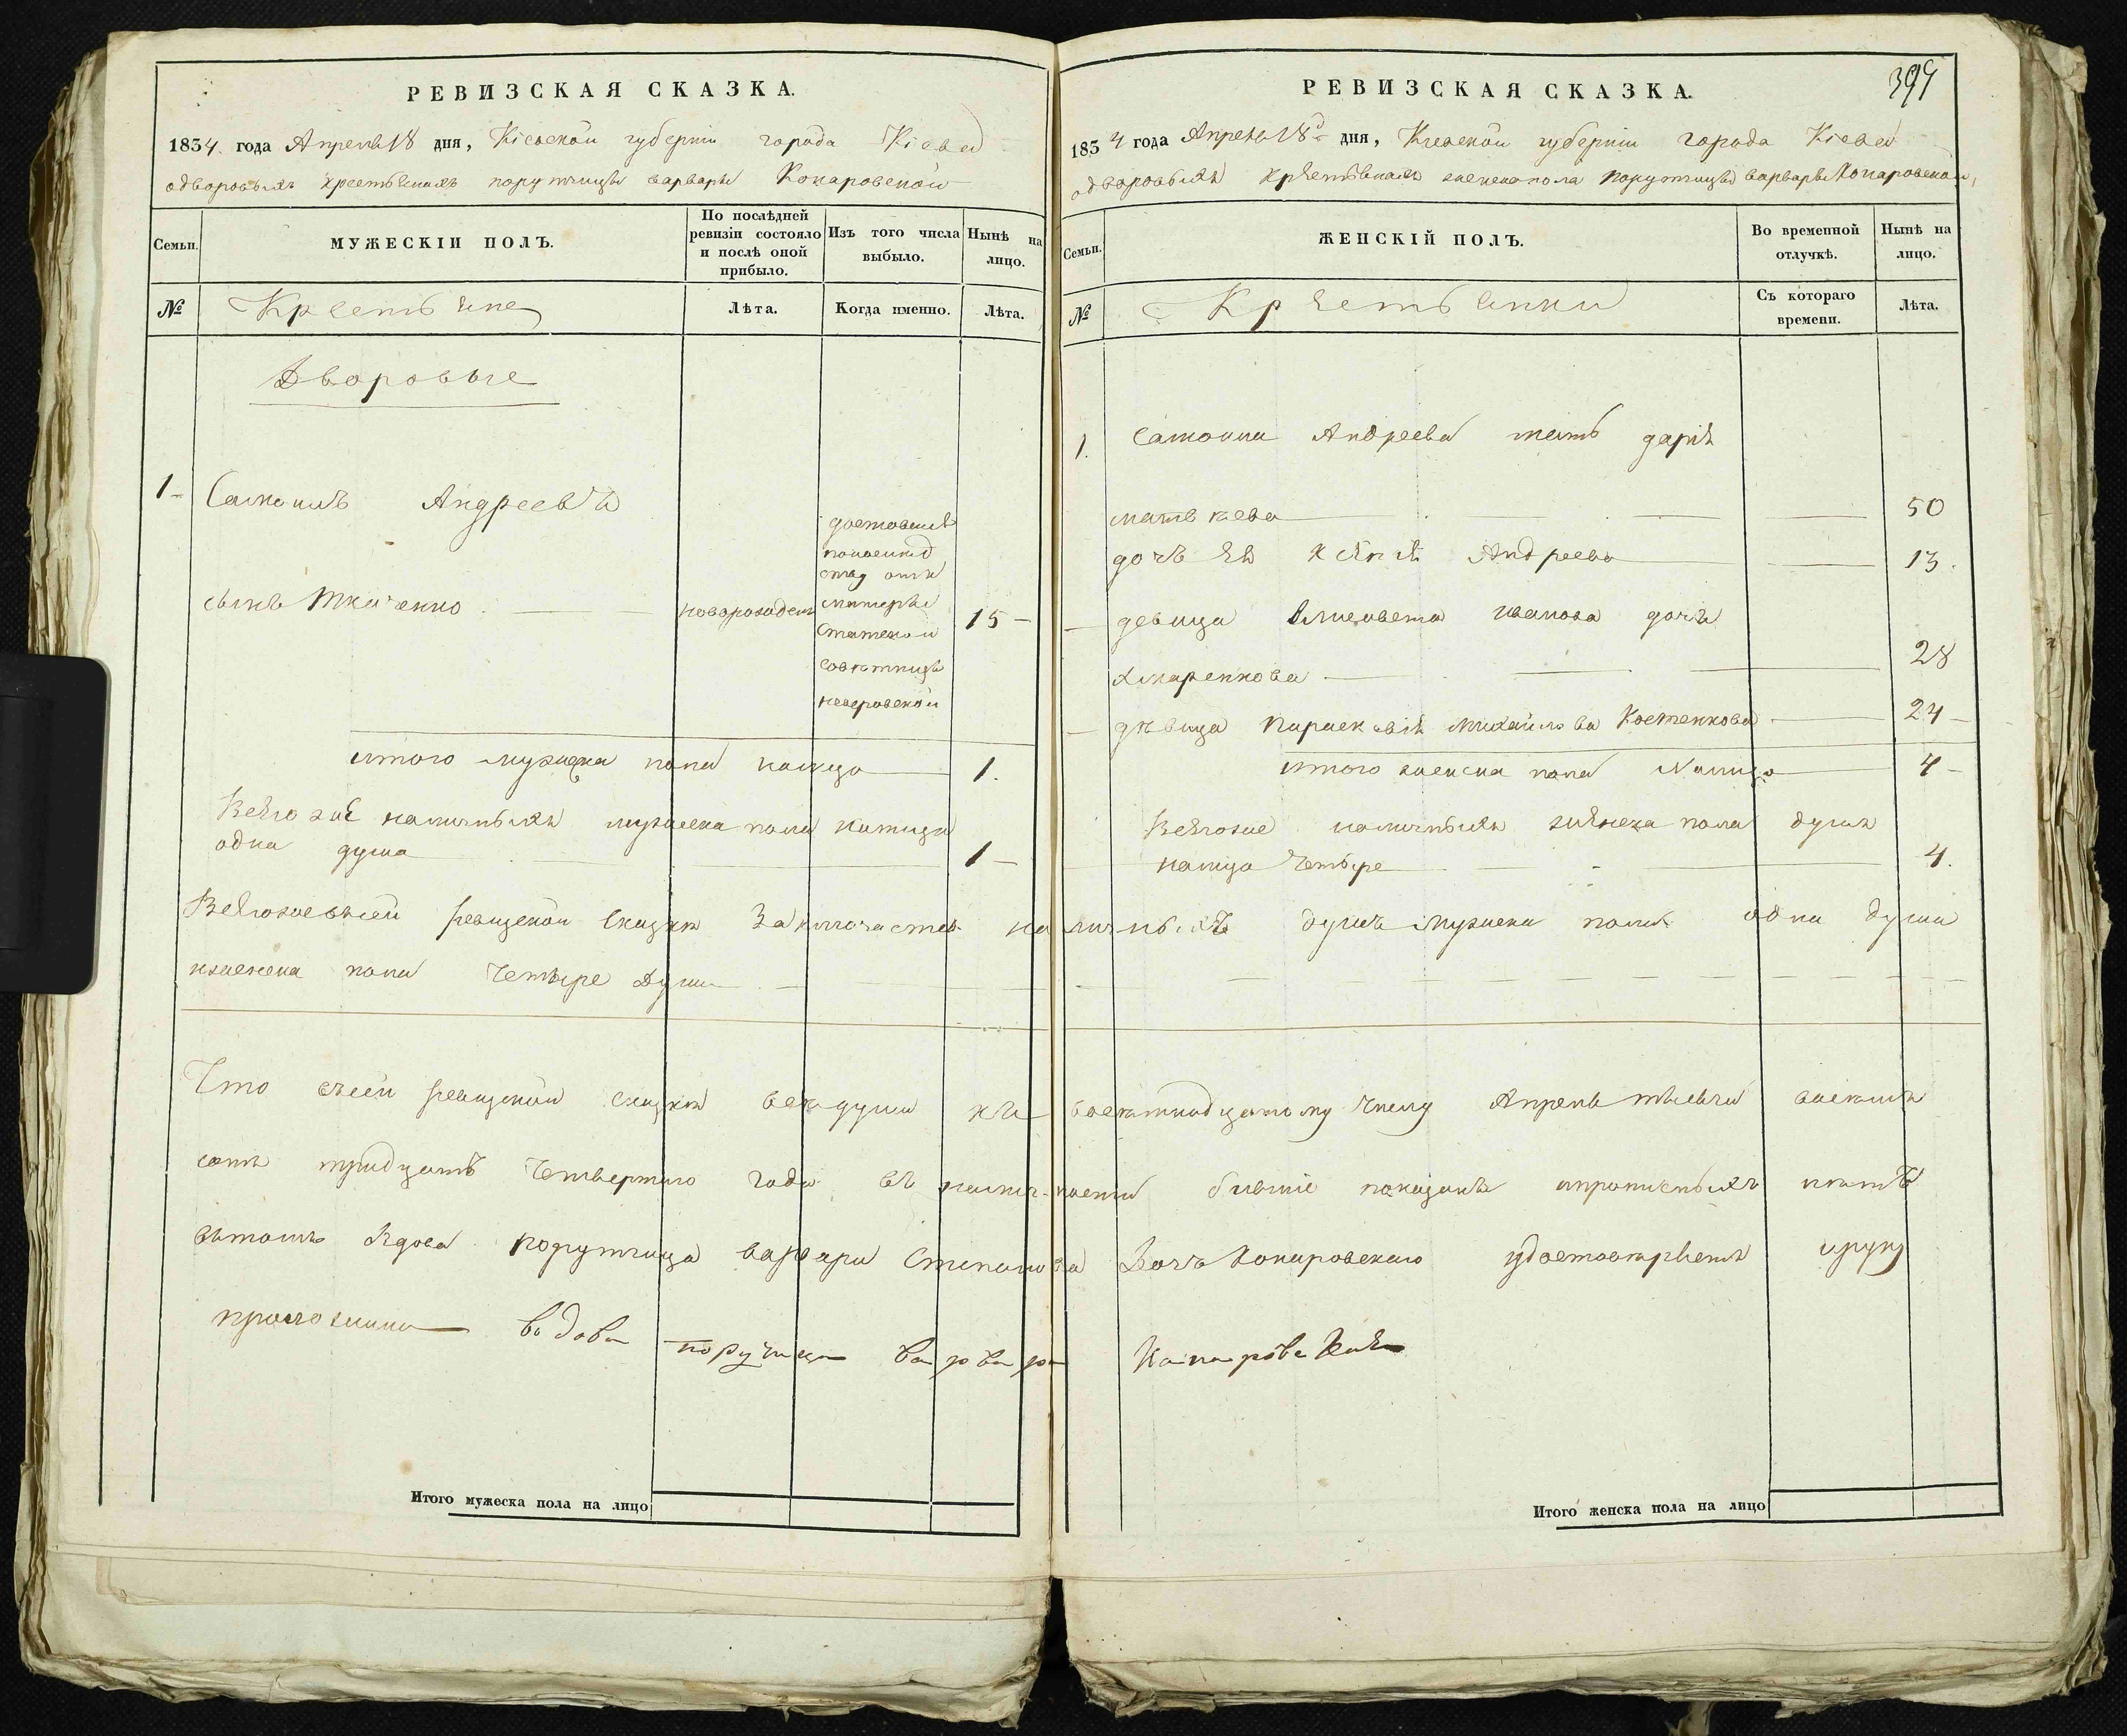 РЕВИЗСКАЯ СКАЗКА.
1834. года Апреля 18 дня, Кіевской губерніи города Кіева
одворовыхъ крестьянахъ порутчицы варвары Конаровской
Семьи.
МУЖЕСКІЙ ПОЛЪ.
По послѣдней ревизіи состояло и послѣ оной прибыло.
Изъ того числа выбыло.
Нынѣ на лицо.
№
Крестьяне
Лѣта.
Когда именно.
Лѣта.
Дворовые
1
Самоилъ Андреевъ
сынъ Ткаченко
новорожден
достовшей
отъ
матери
статской
совѣтницы
15
итого мужеска пола налицо 1.
Всего же наличныхъ мужеска пола налицо
одна душа 1
РЕВИЗСКАЯ СКАЗКА.
399
1834 года Апреля 18 дня, Киевской губерніи города Кіева
одворовыхъ крестьянахъ женска пола порутчицы варвары Конаровской
Семьи.
ЖЕНСКІЙ ПОЛЪ.
Во временной отлучкѣ.
Нынѣ на лицо.
№
Крестьянки
Съ котораго времени.
Лѣта.
1. Самоила Андреева мать дарія
матвѣева 50
дочь ея ксенія Андреева 13.
девица Елисавета иванова дочь
28
дѣвица Параскевія Михайлова Костенкова 24
итого женска пола Налицо 4
Всегоже наличныхъ женска пола душъ
налицо Четыре 4.
Всего повсей ревизской сказки Заключается наличныхъ душъ мужеска пола одна душа
иженска пола Четыре Души
Что всей ревизской сказки все души къ восемнадцатому числу Апреля тысяча восемъ
сотъ тридцать Четвертаго года въ наличности бывшіе показаны ипрописныхъ нѣтъ
вътомъ вдова порутчица варвара Степанова дочь Конаровская удостовѣряетъ ируку
приложила вдова поручица варвара Канаровская
Итого мужеска пола на лицо
Итого женска пола на лицо